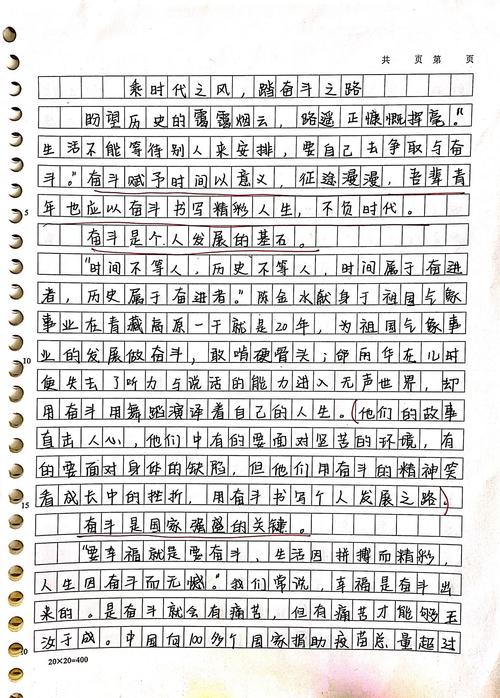 共 页 第 页
乘时代之风，踏奋斗之路
盼望历史的霭霭烟云，路遥正慷慨挥毫。“
生活不能等待别人来安排，要自己去争取与奋
斗。”奋斗赋予时间以意义，征途漫漫，吾辈青
年也应以奋斗书写精彩人生，不负时代。
5
奋斗是个人发展的基石。
“时间不等人，历史不等人，时间属于奋进
者，历史属于奋进者。”陈金水献身于祖国气象
事业在青藏高原一干就是20年，为祖国气象事
10
业的发展做奋斗，敢啃硬骨头；邰丽华在儿时
便失去了听力与说话的能力进入无声世界，却
用奋斗用舞蹈演译着自己的人生。他们的故事
直击人心，他们中有的要面对坚苦的环境，有
的要面对身体的缺陷，但他们用奋斗的精神笑
15
看成长中的挫折，用奋斗书写个人发展之路。
奋斗是国家强盛的关键。
“要幸福就是要奋斗，生活因拼搏而精彩，
人生因奋斗而无憾。”我们常说，幸福是奋斗出
来的。是奋斗就会有痛苦，但有痛苦才能够玉
20
汝于成。中国向100多个国家捐助疫苗总量超过
20×20=400